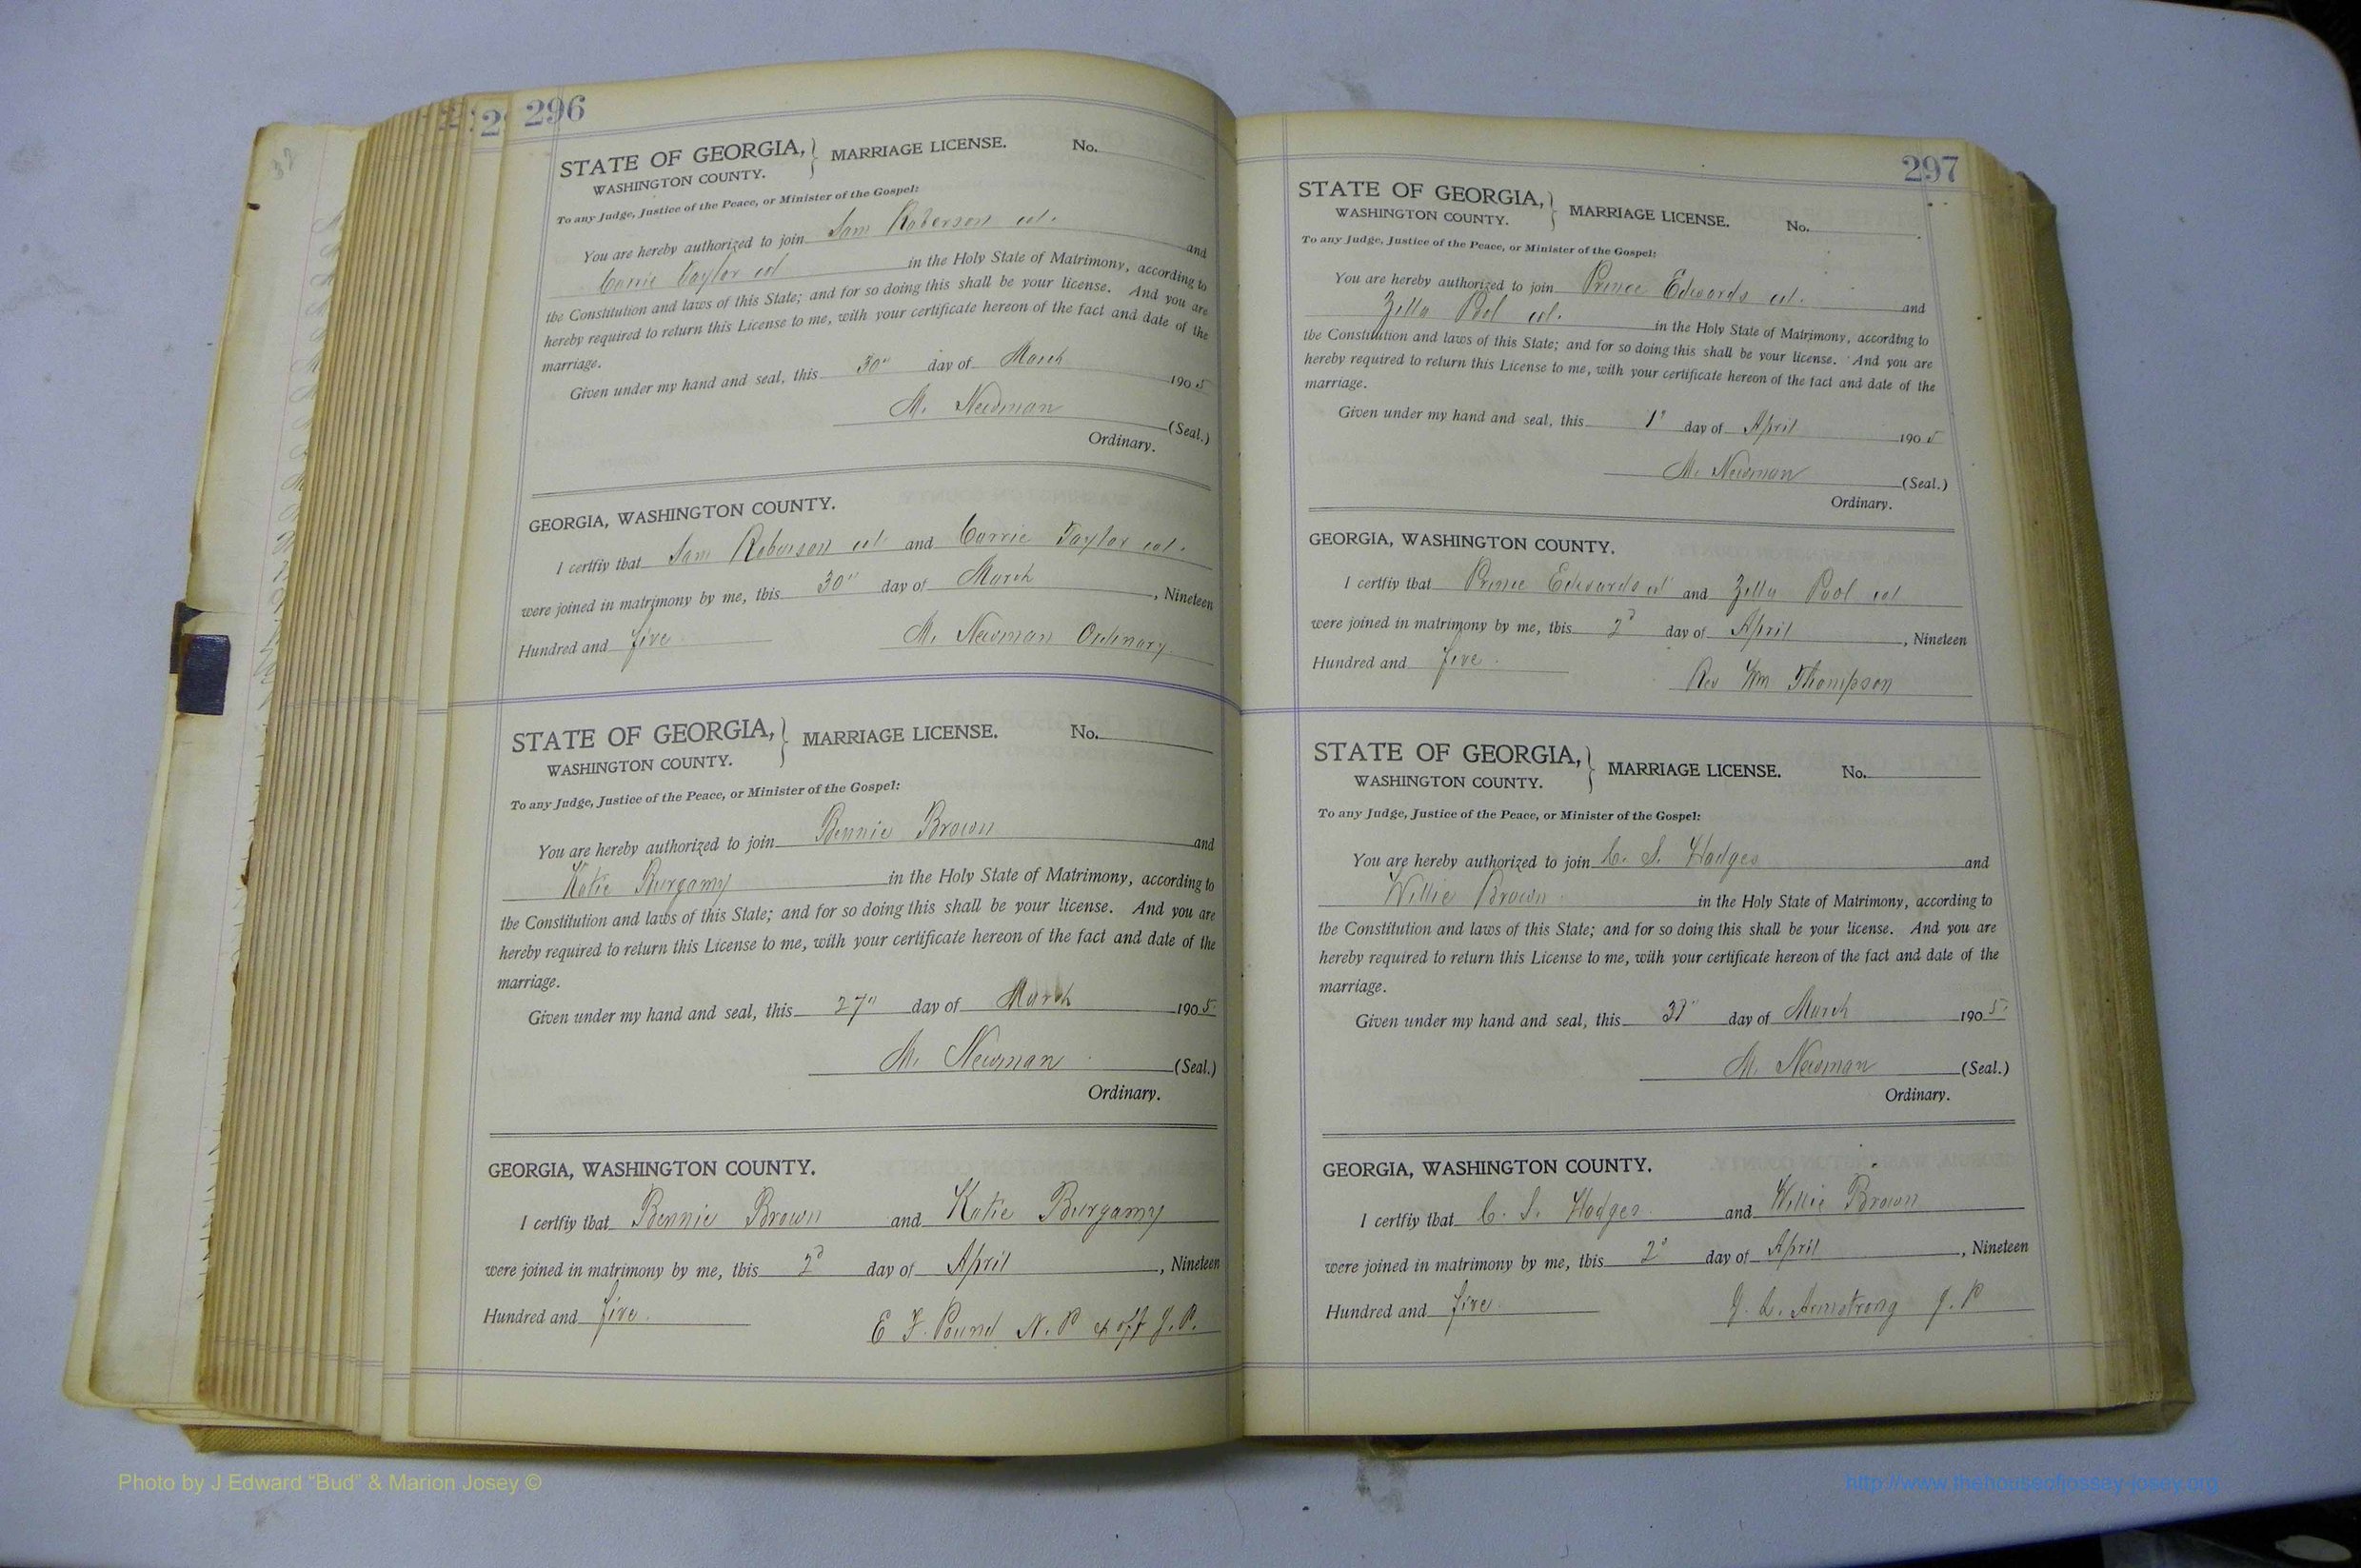 296
STATE OF GEORGIA, } MARRIAGE LICENSE. No.
WASHINGTON COUNTY.
To any Judge, Justice of the Peace, or Minister of the Gospel:
You are hereby authorized to join Sam Roberson col. and
Carrie Taylor col in the Holy State of Matrimony, according to
the Constitution and laws of this State; and for so doing this shall be your license. And you are
hereby required to return this License to me, with your certificate hereon of the fact and date of the
marriage.
Given under my hand and seal, this 30" day of March 1905
M. Newman (Seal.)
Ordinary.
GEORGIA, WASHINGTON COUNTY.
I certfiy that Sam Roberson col and Carrie Taylor col.
were joined in matrimony by me, this 30" day of March, Nineteen
Hundred and five M. Newman Ordinary
STATE OF GEORGIA, } MARRIAGE LICENSE. No.
WASHINGTON COUNTY.
To any Judge, Justice of the Peace, or Minister of the Gospel:
You are hereby authorized to join Bennie Brown and
Katie Burgamy in the Holy State of Matrimony, according to
the Constitution and laws of this State; and for so doing this shall be your license. And you are
hereby required to return this License to me, with your certificate hereon of the fact and date of the
marriage.
Given under my hand and seal, this 27" day of March 1905
M. Newman (Seal.)
Ordinary.
GEORGIA, WASHINGTON COUNTY.
I certfiy that Bennie Brown and Katie Burgamy
were joined in matrimony by me, this 2d day of April, Nineteen
Hundred and five. E F. Pound N. P & off J. P.
297
STATE OF GEORGIA, } MARRIAGE LICENSE. No.
WASHINGTON COUNTY.
To any Judge, Justice of the Peace, or Minister of the Gospel:
You are hereby authorized to join Prince Edwards col. and
Zella Pool col. in the Holy State of Matrimony, according to
the Constitution and laws of this State; and for so doing this shall be your license. And you are
hereby required to return this License to me, with your certificate hereon of the fact and date of the
marriage.
Given under my hand and seal, this 1" day of April 1905
M. Newman (Seal.)
Ordinary.
GEORGIA, WASHINGTON COUNTY.
I certfiy that Prince Edwards col and Zella Pool col
were joined in matrimony by me, this 2d day of April, Nineteen
Hundred and five. Rev Wm Thompson
STATE OF GEORGIA, } MARRIAGE LICENSE. No.
WASHINGTON COUNTY.
To any Judge, Justice of the Peace, or Minister of the Gospel:
You are hereby authorized to join C. S. Hodges and
Willie Brown in the Holy State of Matrimony, according to
the Constitution and laws of this State; and for so doing this shall be your license. And you are
hereby required to return this License to me, with your certificate hereon of the fact and date of the
marriage.
Given under my hand and seal, this day of March 1905.
M. Newman (Seal.)
Ordinary.
GEORGIA, WASHINGTON COUNTY.
I certfiy that C. S. Hodges and Willie Brown
were joined in matrimony by me, this 2d day of April, Nineteen
Hundred and five Armstrong J. P
Photo by J Edward "Bud" & Marion Josey ©
http://www.thehouseofjossey-josey.org